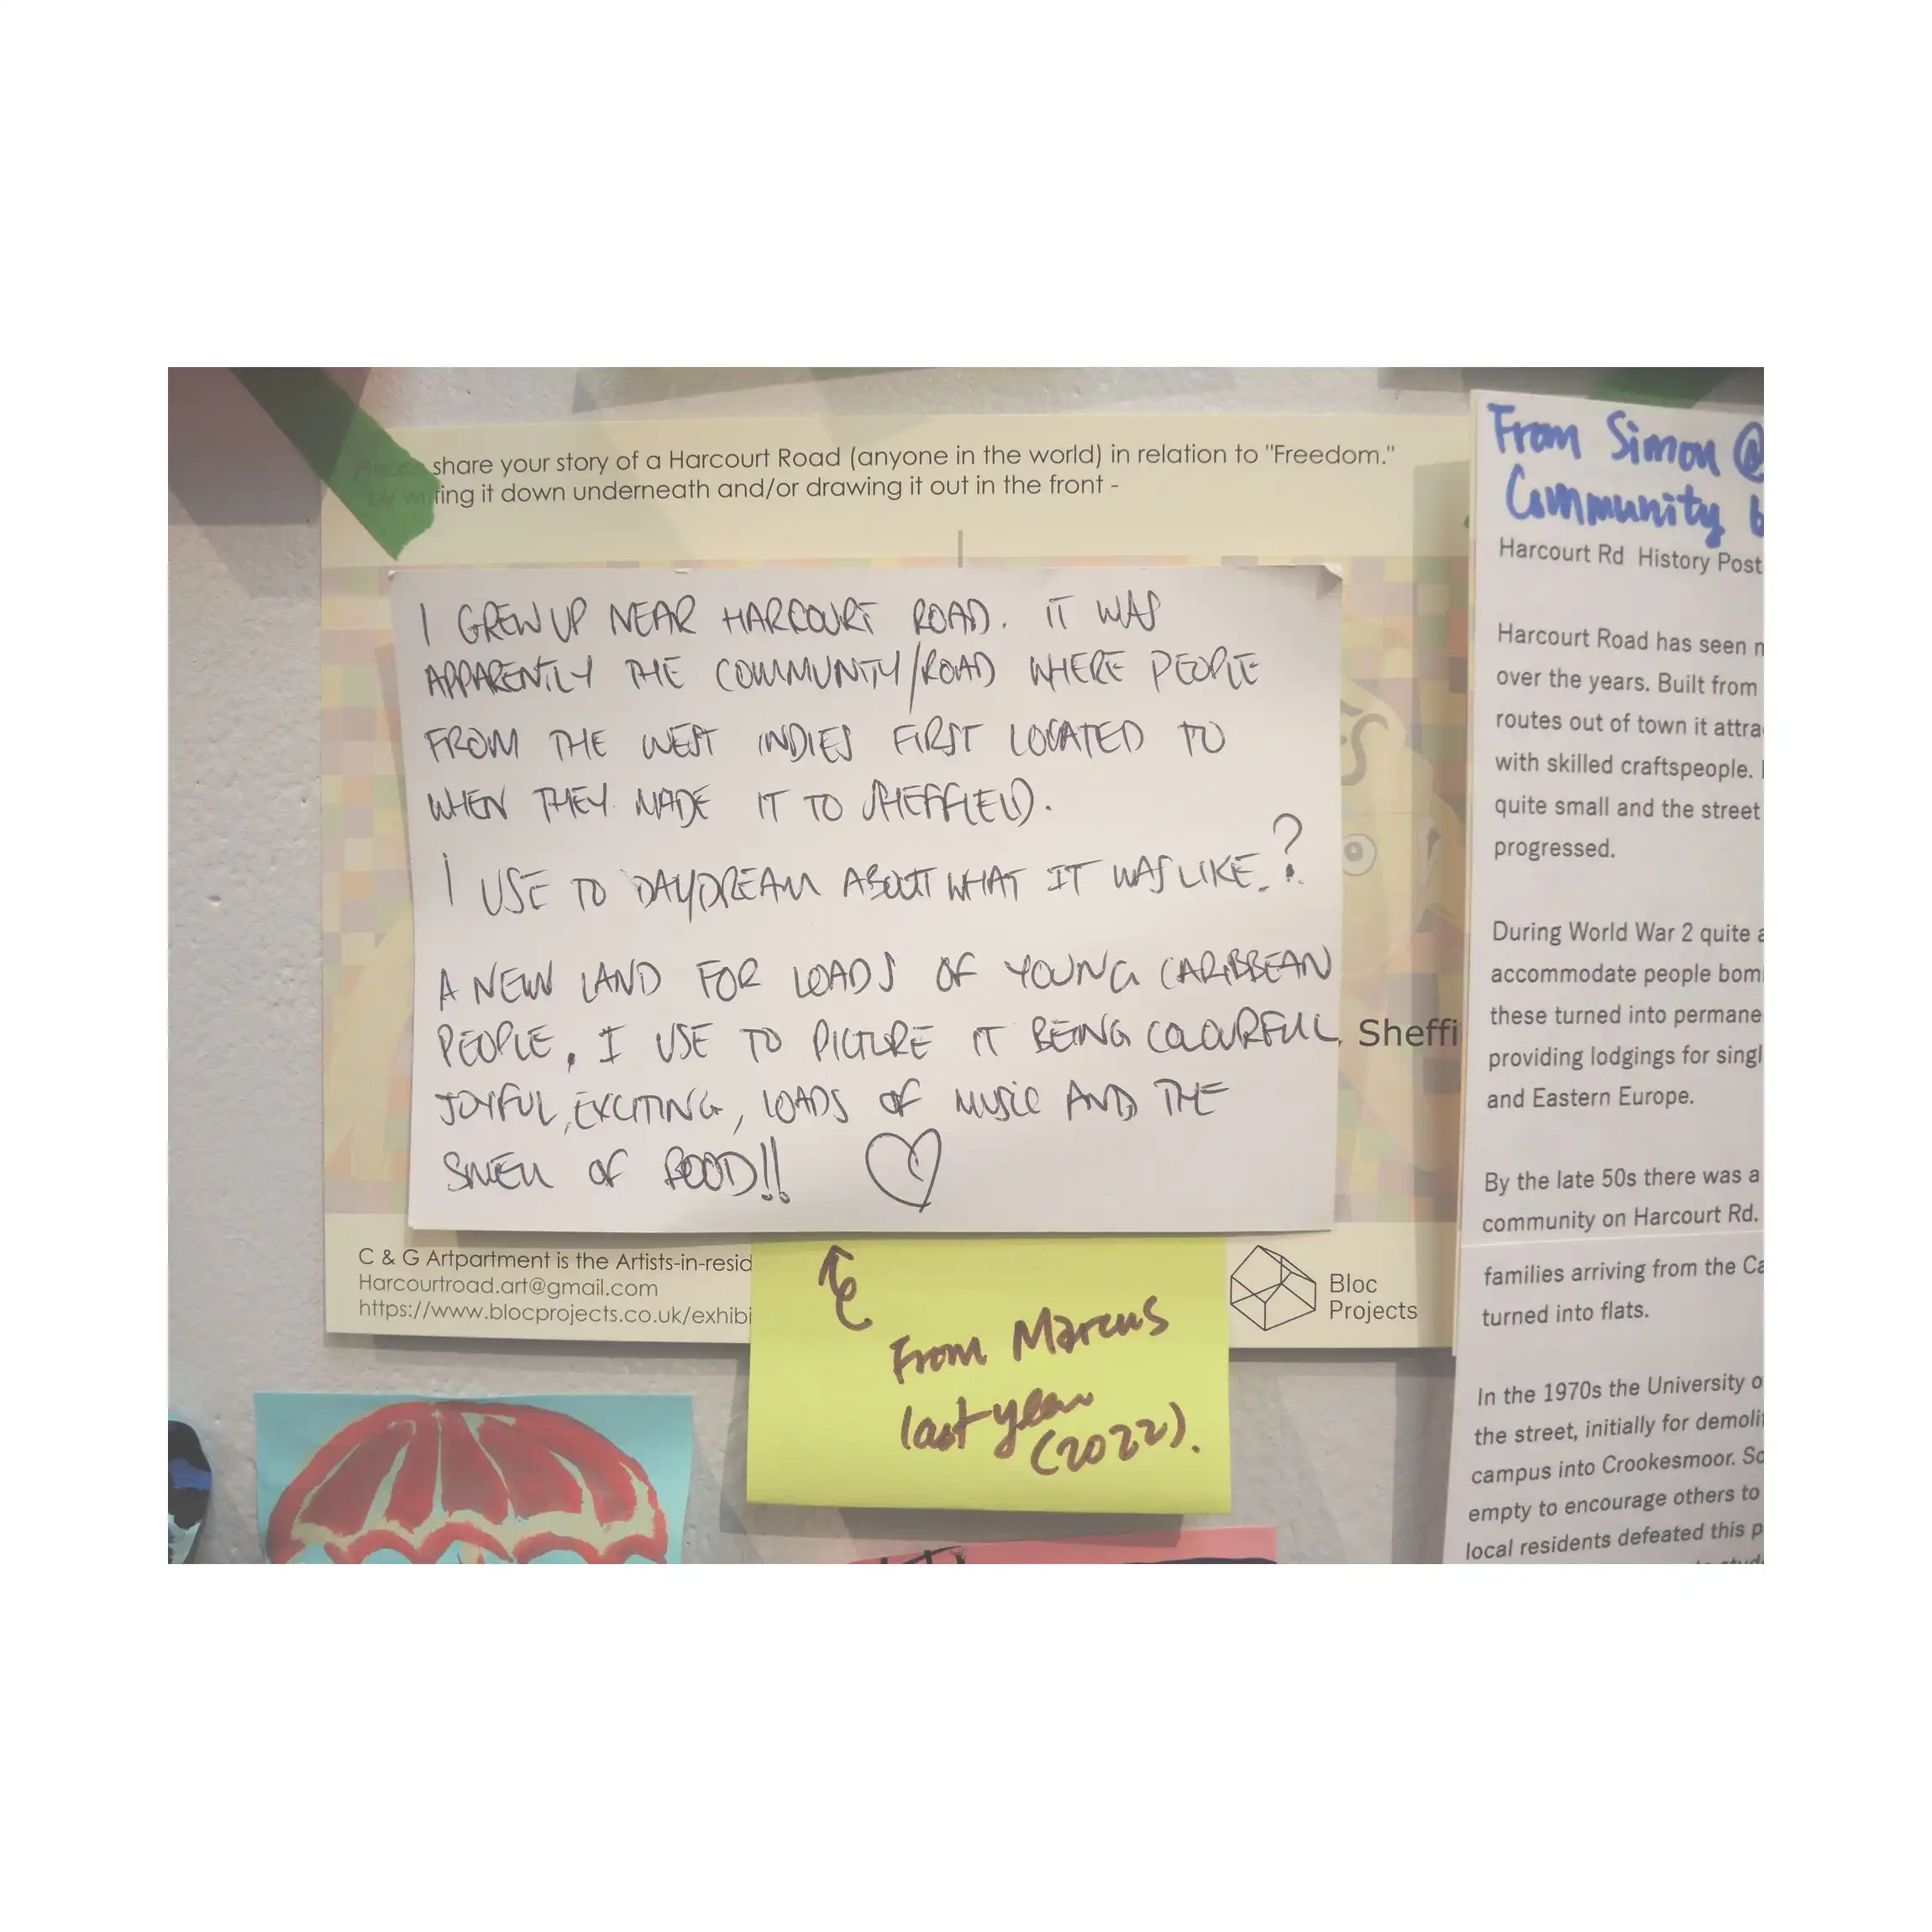 Please share your story of a Harcourt Road (anyone in the world) in relation to "Freedom."
by writing it down underneath and/or drawing it out in the front -
I GREW UP NEAR HARCOURT ROAD. IT WAS
APPARENTLY THE COMMUNITY/ROAD WHERE PEOPLE
FROM THE WEST INDIES FIRST LOCATED TO
WHEN THEY MADE IT TO SHEFFIELD.
I USE TO DAYDREAM ABOUT WHAT IT WAS LIKE.?
A NEW LAND FOR LOADS OF YOUNG CARIBBEAN
PEOPLE. I USE TO PICTURE IT BEING COLOURFUL,
JOYFUL, EXCITING, LOADS OF MUSIC AND THE
SMELL OF FOOD!!
Sheffi
C & G Artpartment is the Artists-in-resid
Harcourtroad.art@gmail.com
https://www.blocprojects.co.uk/exhibi
Bloc
Projects
From Marcus
last year
(2022).
From Simon @
Community
Harcourt Rd History Post
Harcourt Road has seen
over the years. Built from
routes out of town it attra
with skilled craftspeople.
quite small and the street
progressed.
During World War 2 quite a
accommodate people bom
these turned into permane
providing lodgings for singl
and Eastern Europe.
By the late 50s there was a
community on Harcourt Rd.
families arriving from the Ca
turned into flats.
In the 1970s the University o
the street, initially for demoli
campus into Crookesmoor. So
empty to encourage others to
local residents defeated this p